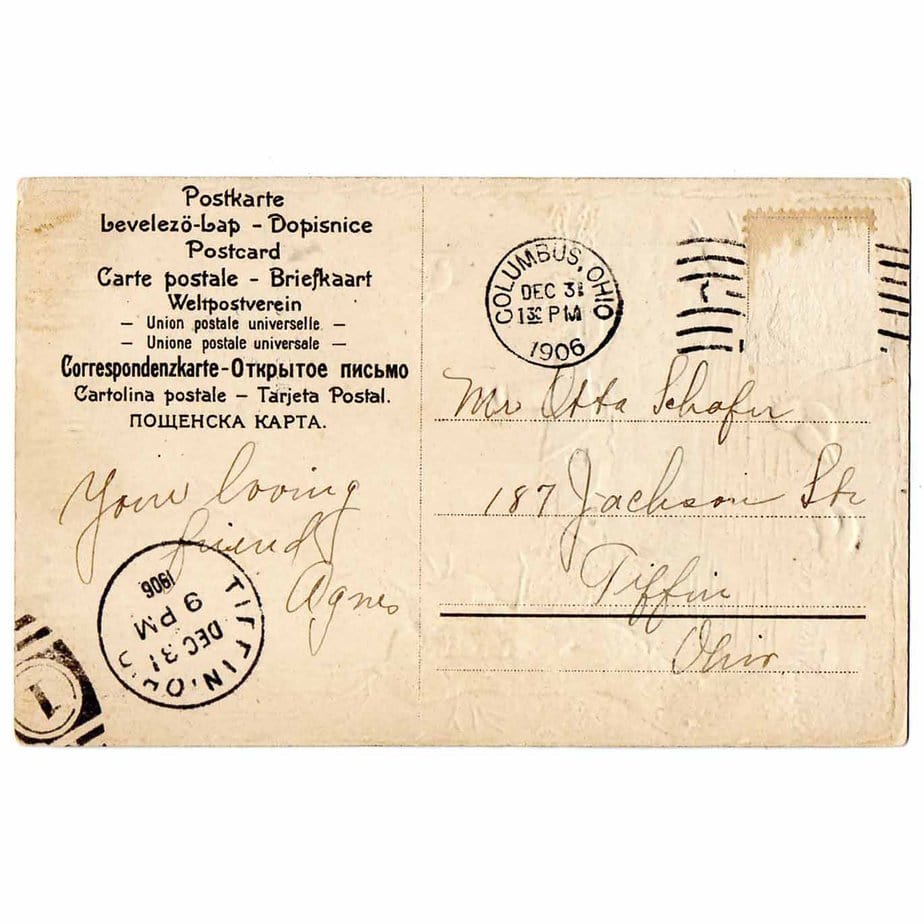 Postkarte
Levelező-Lap - Dopisnice
Postcard
Carte postale - Briefkaart
Weltpostverein
— Union postale universelle. —
— Unione postale universale —
Correspondenzkarte - Открытое письмо
Cartolina postale — Tarjeta Postal.
ПОЩЕНСКА КАРТА.
Your loving
friend
Agnes
TIFFIN, O
DEC 31
9 PM
1906
1
COLUMBUS, OHIO
DEC 31
1 30 PM
1906
Mr Otto Schafer
187 Jackson Str
Tiffin
Ohio